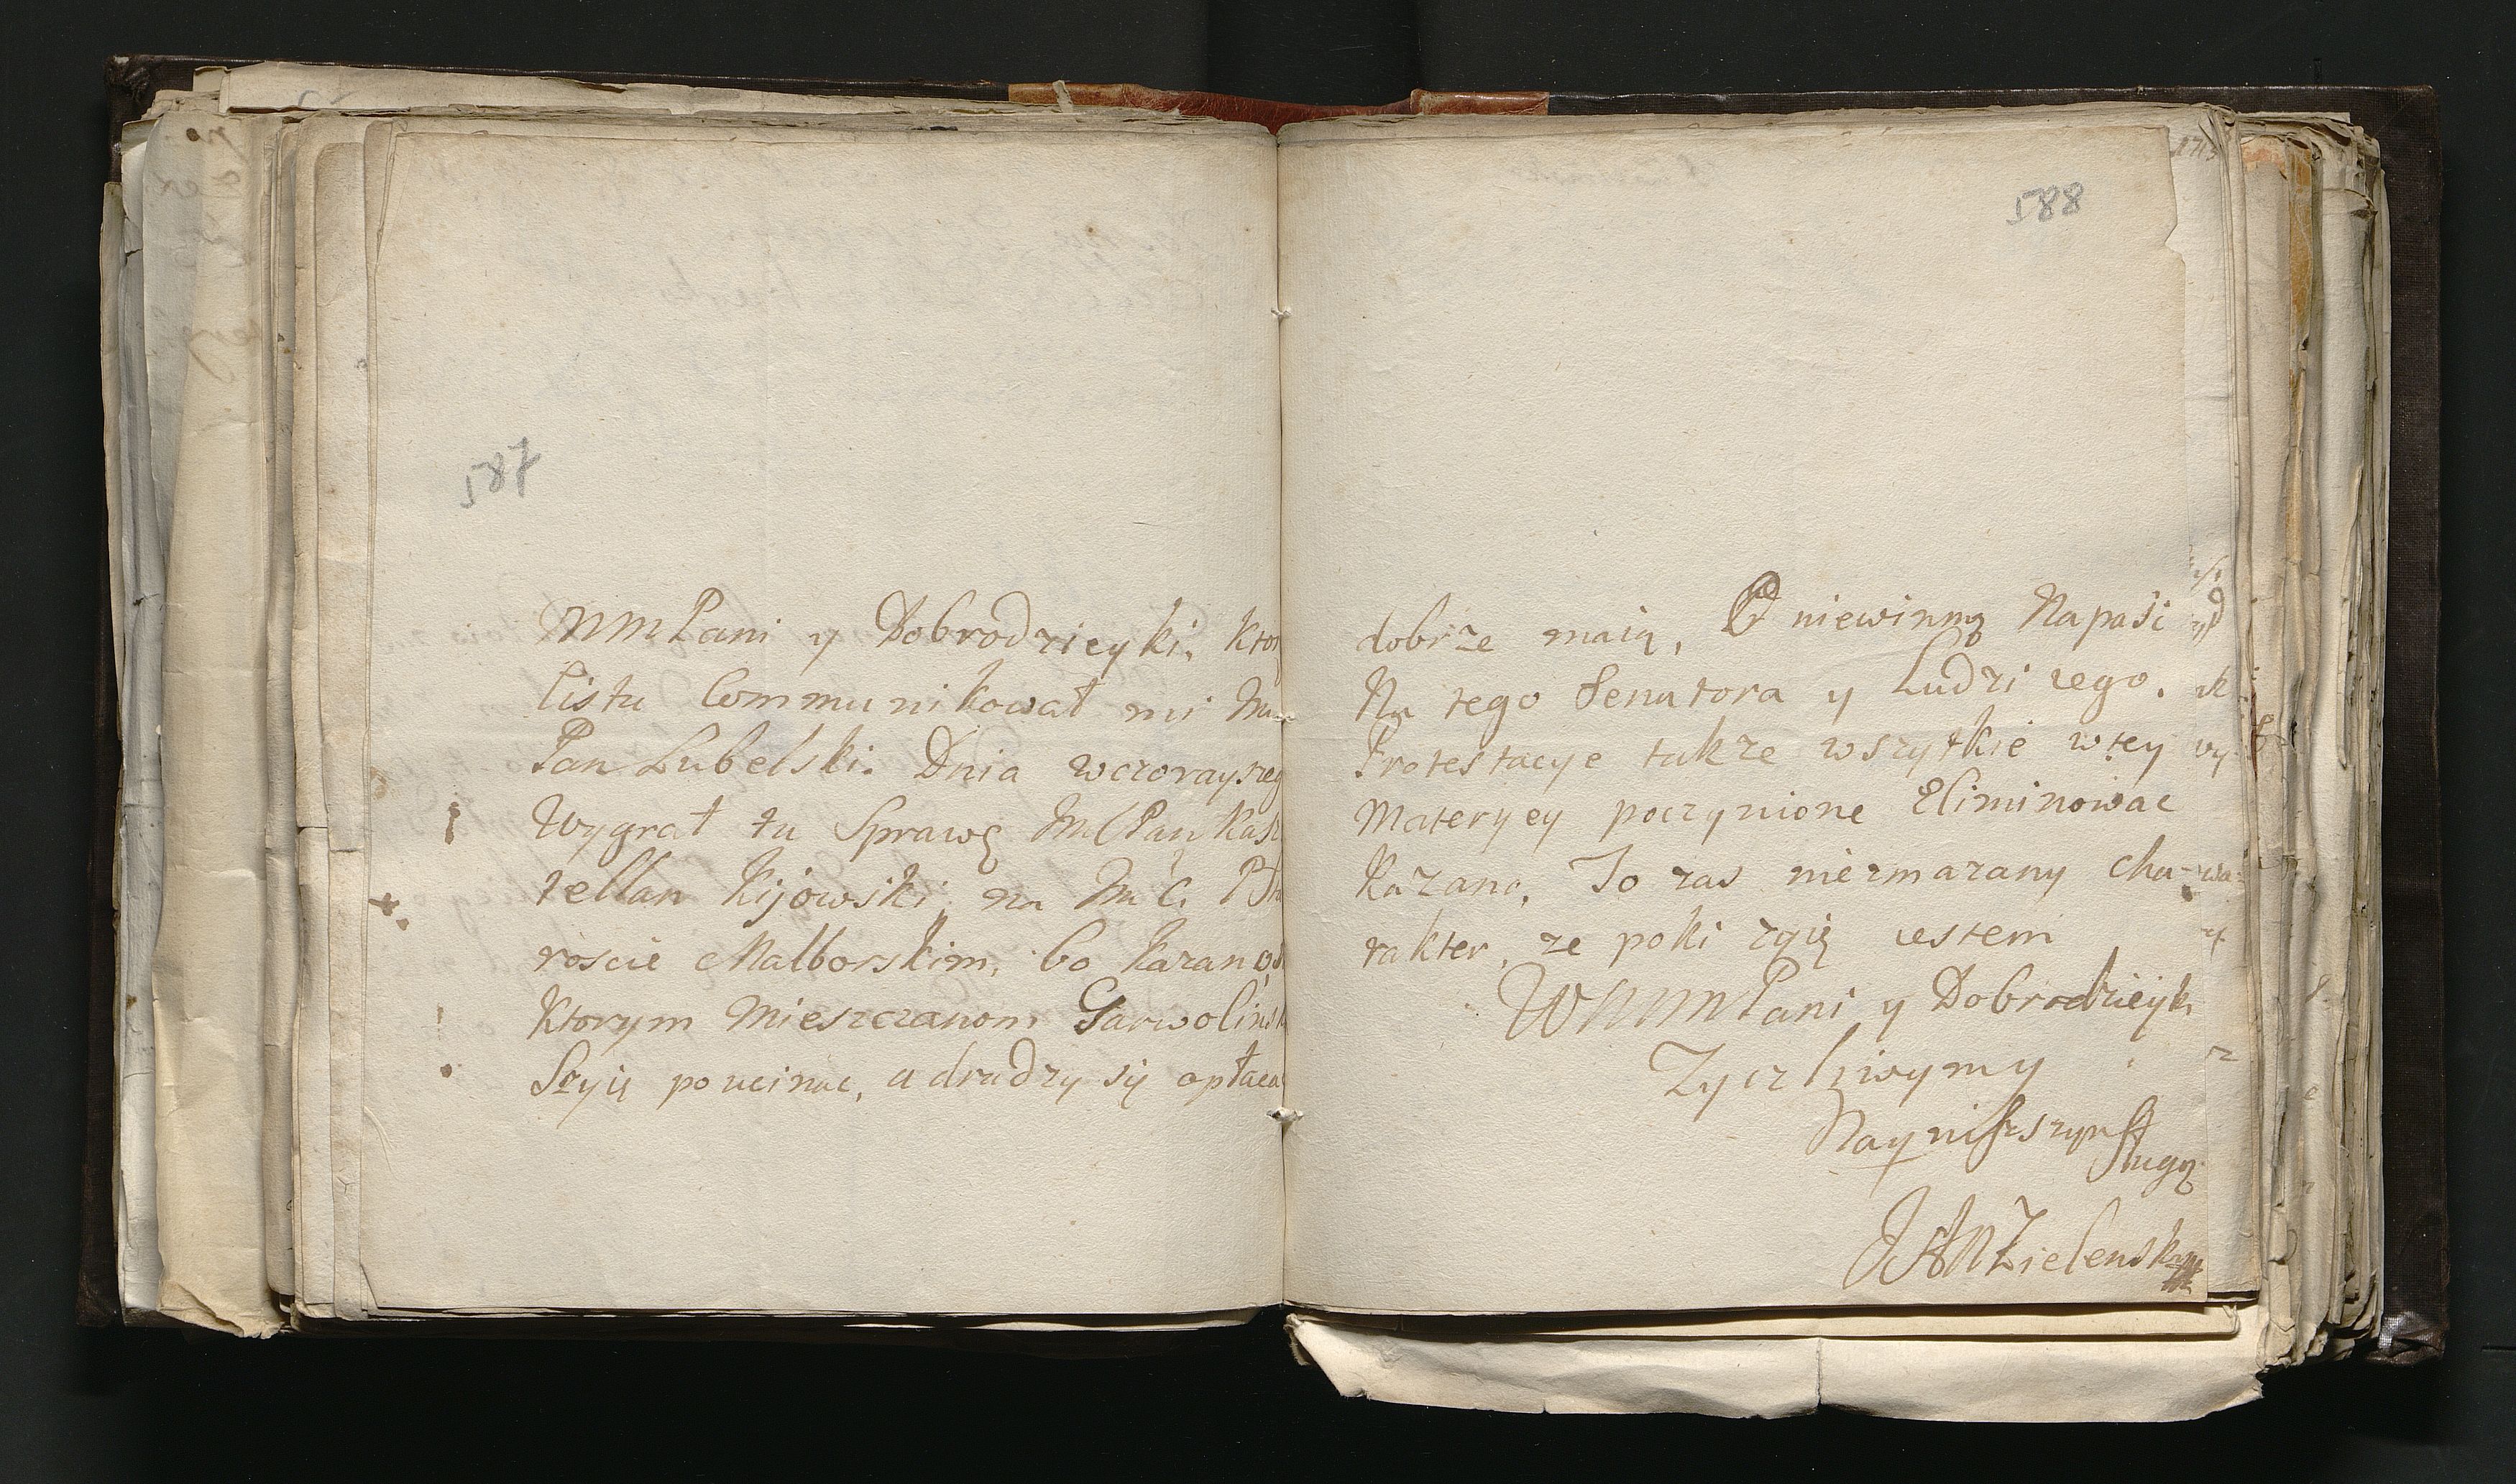 587
WMM Pani y Dobrodzieyki. Ktor
listu Communikował mi Im
Pan Lubelski. Dnia wczorayszeg
Wygrał tu Sprawę ImC Pan Kasz
tellan Kijowski na ImC. P Sta
roscie Malborskim, bo kazano
Ktorym Mieszczanom Garwolinsk
Szyię poucinac, a drudzy się opłaca
588
dobrze maią, O niewinną Napaśc
Na tego Senatora y Ludzi iego.
Protestacye takze wszytkie wtey
Materyey poczynione Eliminowac
Kazano, To zas niezmazany cha-
rakter, ze poki zyię iestem
WMM Pani y Dobrodzieyk
Zyczliwym y
Nayniszszym
Sługą
JAN Zielensk